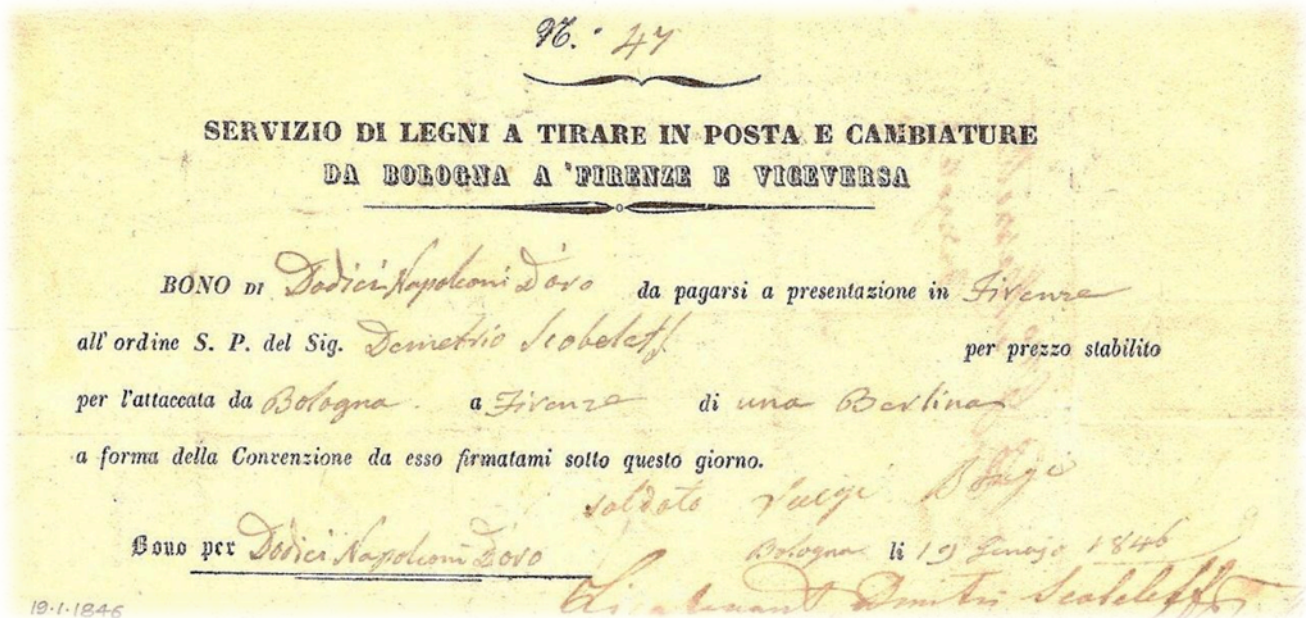 N. 47
SERVIZIO DI LEGNI A TIRARE IN POSTA E CAMBIATURE
DA BOLOGNA A FIRENZE E VICEVERSA
BONO DI Dodici Napoleoni D'oro da pagarsi a presentazione in Firenze
all'ordine S. P. del Sig. Demetrio Scobeleff per prezzo stabilito
per l'attaccata da Bologna a Firenze di una Berlina
a forma della Convenzione da esso firmatami sotto questo giorno.
saldato Luigi
Bono per Dodici Napoleoni D'oro Bologna li 19 Genajo 1846
Dmitri Scobeleff
19.1.1846